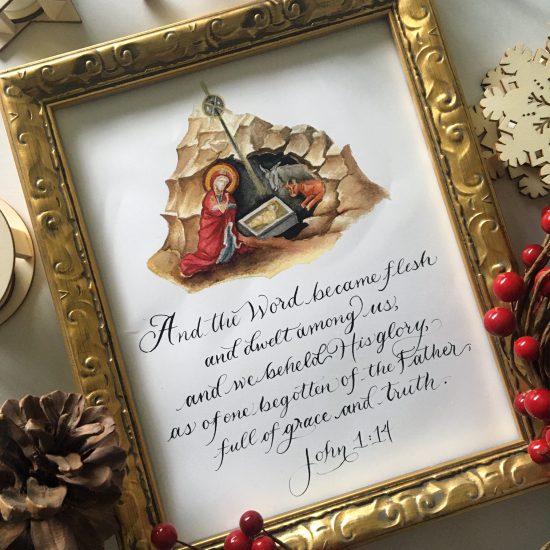 And the Word became flesh
and dwelt among us,
and we beheld His glory,
as of one begotten of the Father,
full of grace and truth.
John 1:14